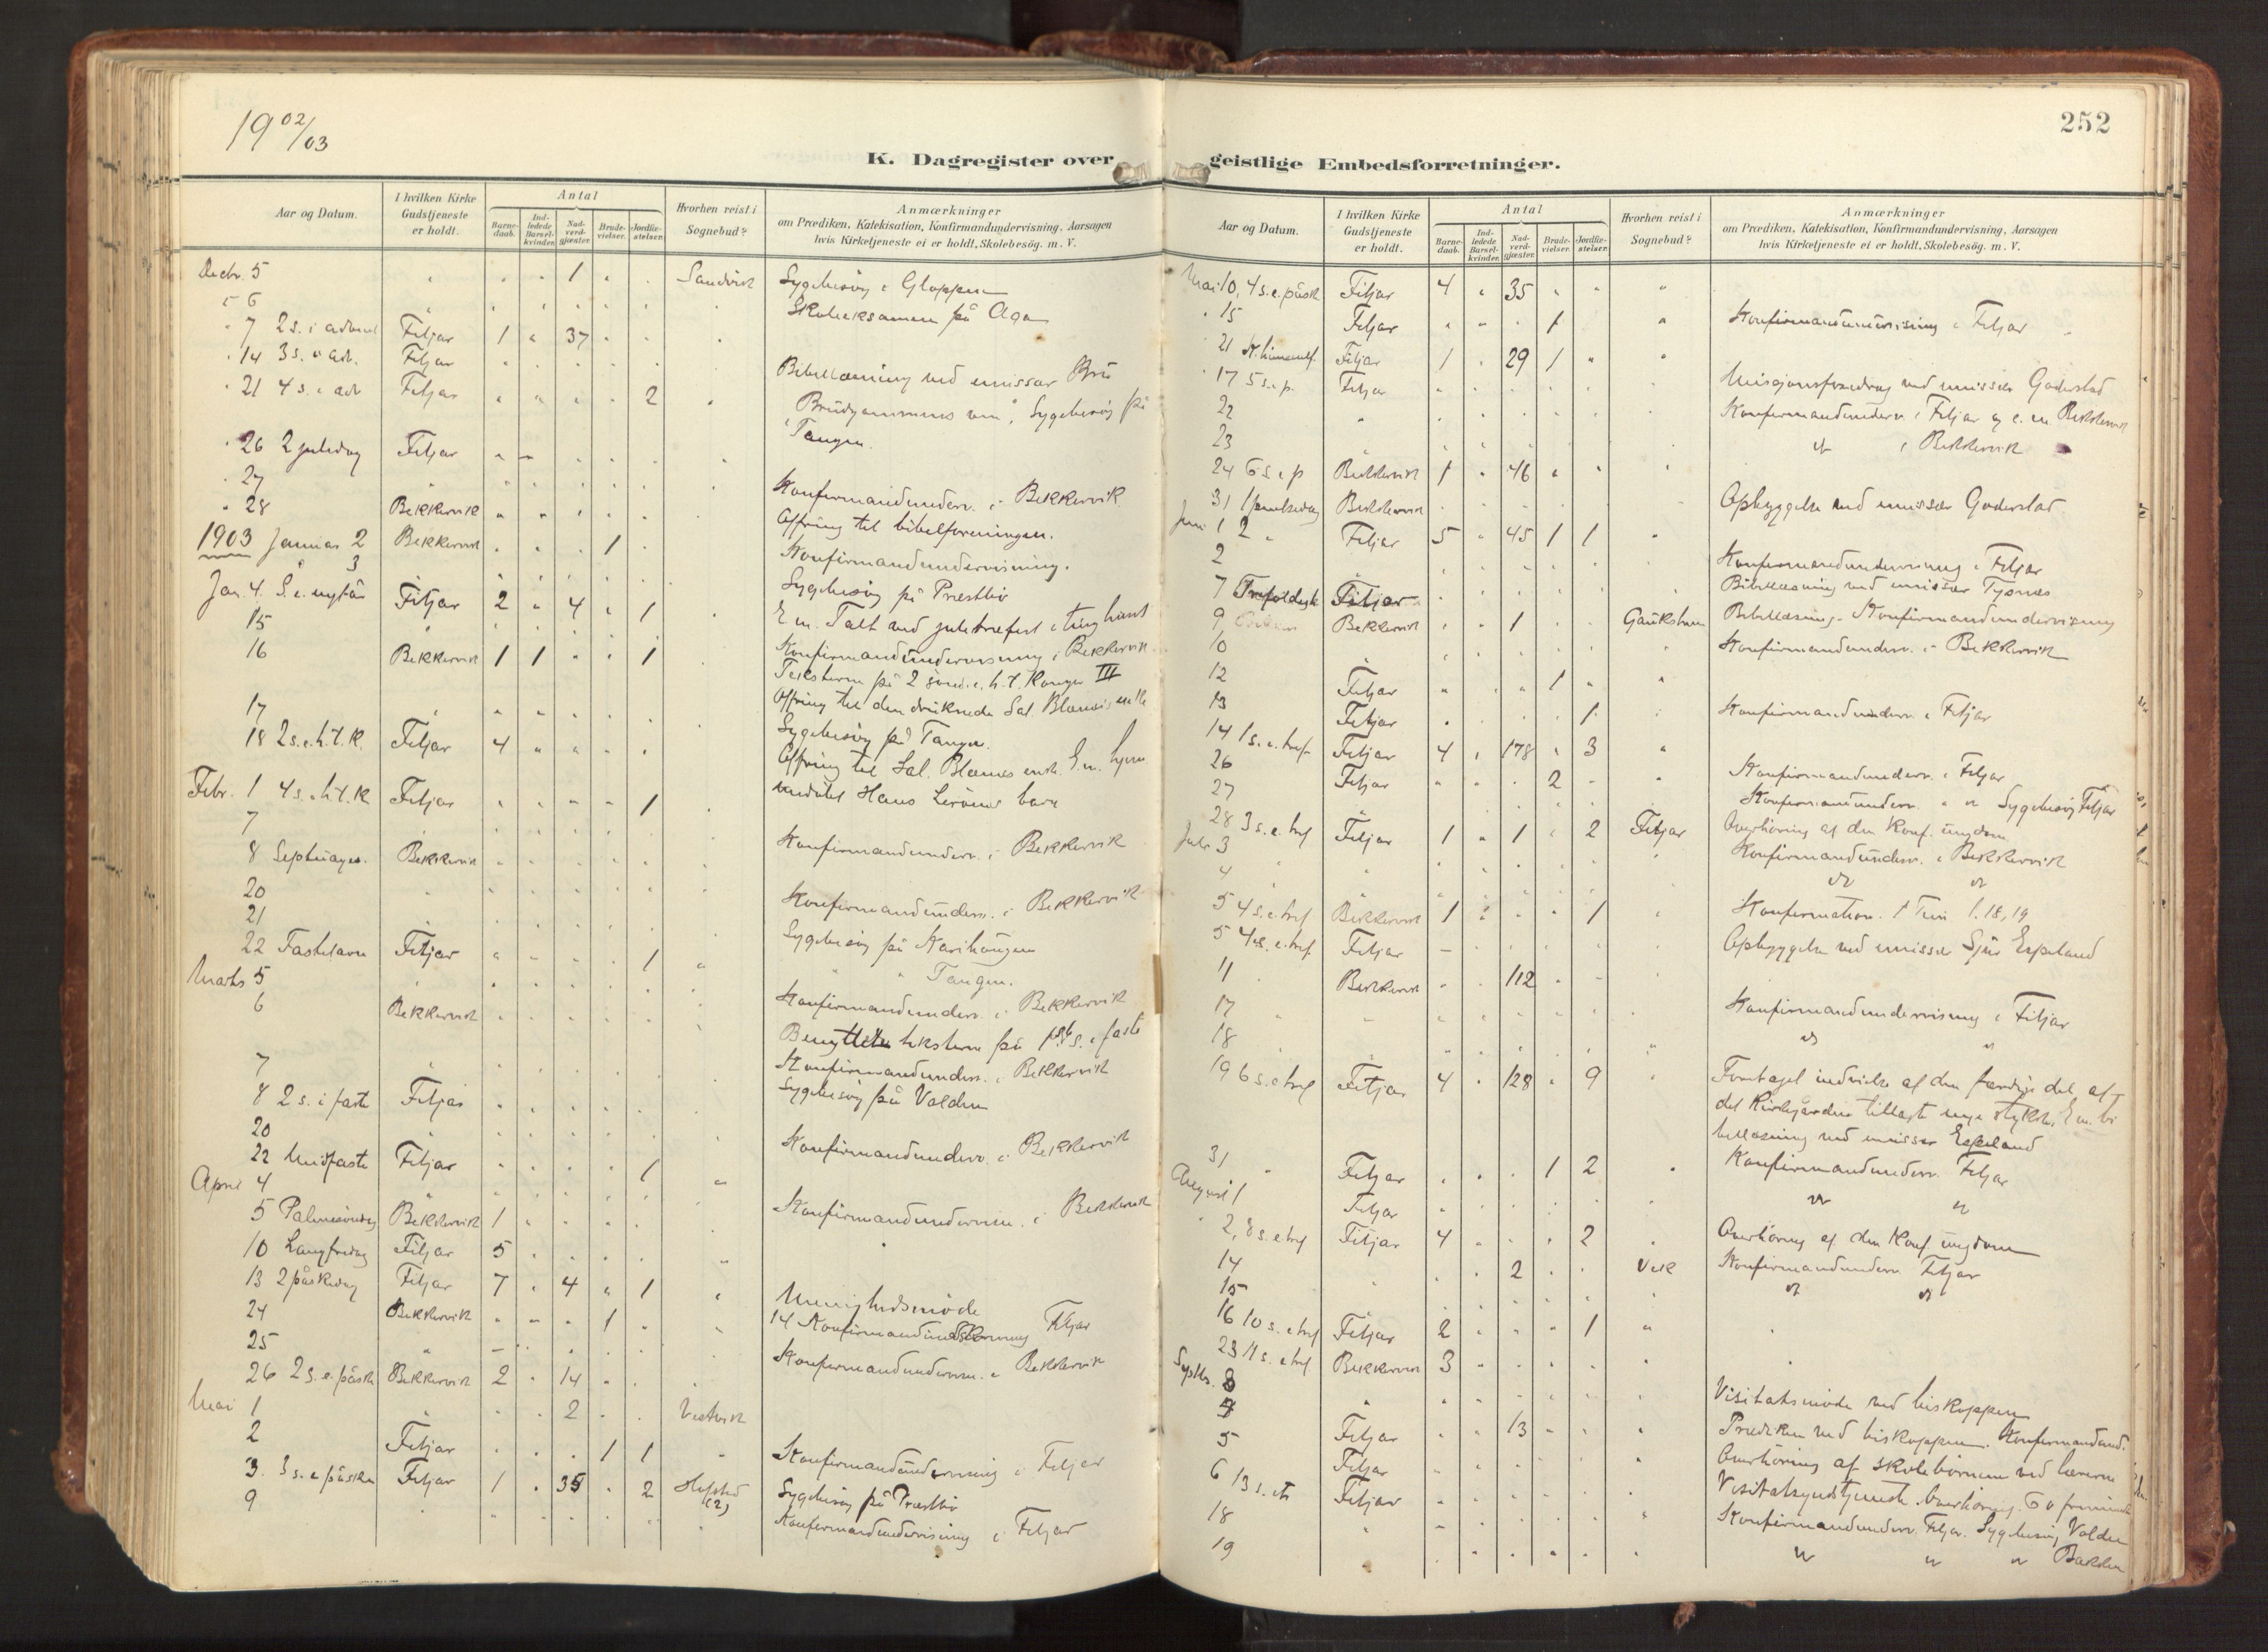 1902/03
K. Dagregister over
Aar og Datum. I hvilken Kirke Gudstjeneste er holdt. Antal Barnedaab. Indledede Barselkvinder. Nadverdgjæster. Brudevielser. Jordfæstelser. Hvorhen reist i Sognebud? Anmærkninger om Prædiken, Katekisation, Konfirmandundervisning, Aarsagen hvis Kirketjeneste ei er holdt, Skolebesøg. m. V.
Decbr. 5 " " " 1 " " Sandvik Sygebesøg i Gloppen
" 6 " " " " " " " Skoleeksamen på Aga
" 7 2 s. i advent Fitjar 1 " 37 " " "
" 14 3 s. i adv. Fitjar " " " " " " Bibellæsning ved emissær Brü
" 21 4 s. i adv Fitjar " " " " 2 " Brudgommens ven, Sygebesøg på
Tangen.
" 26 2 juledag Fitjar " " " " " "
" 27 " " " " " " " Konfirmandunderv. i Bekkervik
" 28 Bekkervik " " " " " Offring til bibelforeningen.
1903 Januar 2 Bekkervik " " " 1 " Konfirmandundervisning.
3 " " " " " " Sygebesøg på Præstbø
Jan. 4. S. e. nytår Fitjar 2 " 4 " 1 " E. m. Talt ved juletræfest i tinghuset
15 " " " " " " Konfirmandundervisning i Bekkervik
16 Bekkervik 1 1 " " 1 " Teksterne på 2 sønd. e. h. 3. Konger III
Offring til den druknede Sal.
17 " " " " " " Sygebesøg på Tangen.
18 2 s. e. h. t. K. Fitjar 4 " " " " Offring til Sal. enk. E. m. hjem
Febr. 1 4 s. e. h. t. K Fitjar " " " " 1 " Hans barn
7 " " " " " " Konfirmandunderv. i Bekkervik
8 Septuages. Bekkervik " " " " " "
20 " " " " " " " Konfirmandunderv. i Bekkervik
21 " " " " " " Sygebesøg på
22 Fastelavn Fitjar " " " " 1 " " " Tangen.
Marts 5 " " " " " " " Konfirmandunderv. i Bekkervik
6 Bekkervik " " " " " " teksterne på 1ste s. i faste
7 " " " " " " Konfirmandunderv. i Bekkervik
8 2 s. i faste Fitjar " " " " " Sygebesøg på Valdem
20 " " " " " " Konfirmandunderv. i Bekkervik
22 Midfaste Fitjar " " " " 1 "
April 4 " " " " " " Konfirmandundervisn. i Bekkervik
5 Palmesøndag Bekkervik 1 " " " " "
10 Langfredag Fitjar 5 " " " " "
13 2 påskedag Fitjar 7 " 4 " 1 " Menighedsmøde
24 Bekkervik " " " 1 " " 14 Fitjar
25 " " " " " " Konfirmandundervisn. i Bekkervik
26 2 s. e. påske Bekkervik 2 " 14 " " "
Mai 1 " " " 2 " " Vestvik
2 Fitjar " " " 1 1 " Konfirmandundervisning i Fitjar
3. 3 s. e. påske Fitjar 1 " 35 " 2 (2) Sygebesøg på Præstbø
9 " " " " " " " Konfirmandundervisning i Fitjar
252
geistlige Embedsforretninger.
Aar og Datum. I hvilken Kirke Gudstjeneste er holdt. Antal Barnedaab. Indledede Barselkvinder. Nadverdgjæster. Brudevielser. Jordfæstelser. Hvorhen reist i Sognebud? Anmærkninger om Prædiken, Katekisation, Konfirmandundervisning, Aarsagen hvis Kirketjeneste ei er holdt, Skolebesøg. m. V.
Mai 10, 4 s. e. påsk Fitjar 4 " 35 " " "
" 15 Fitjar " " " 1 " Konfirmandundervisning i Fitjar
21 K. himmelf. Fitjar 1 " 29 1 " "
" 17 5 s. e. p. Fitjar " " " " " " Misjonsforedrag ved emissær Gaderstad
22 " " " " " " " Konfirmandunderv. i Fitjar og e. m. Bekkervik
23 " " " " " " " " i Bekkervik
24 6 s. e. p Bekkervik 1 " 46 " " "
31 1 pinsedag Bekkervik " " " " " " Opbyggelse ved emissær Gaderstad
Juni 1 2 " Fitjar 5 " 45 1 1 "
2 " " " " " " Konfirmandundervisning i Fitjar
7 Trefoldigh Fitjar " " " " " Bibellæsning ved emissær Tysnes
9 Bekkervik " " 1 " " Gaukshem Bibellæsning. Konfirmandundervisning
10 " " " " " " Konfirmandunderv. i Bekkervik
12 Fitjar " " " 1 " "
13 Fitjar " " " " 1 " Konfirmandunderv. i Fitjar
14 1 s. e. tref Fitjar 4 " 178 " 3 "
26 Fitjar " " " 2 " " Konfirmandunderv. i Fitjar
27 " " " " " " Konfirmandunderv. " " Sygebesøg Fitjar
28 3 s. e. tref Fitjar 1 " 1 " 2 Fitjar Overhøring af den konf. ungdom
Juli 3 " " " " " " Konfirmandunderv. i Bekkervik
4 " " " " " " " "
5 4 s. e. tref Bekkervik 1 " " " 1 " Konfirmation. 1 Tim 1. 18, 19
5 4 s. e. tref Fitjar " " " " " " Opbyggelse ved emissær Sjur Espeland
11 Bekkervik " " 112 " " "
17 " " " " " " " Konfirmandundervisning i Fitjar
18 " " " " " " " "
19 6 s. e tref Fitjar 4 " 128 " 9 " Foretaget indvielse af den færdige del af
det kirkegården tillagte nye stykke, E. m. bi
bellæsning ved emissær Espeland
31 " Fitjar " " " 1 2 " Konfirmandunderv. Fitjar
August 1 Fitjar " " " " " " " "
" 2, 8 s. e tref Fitjar 4 " " " 2 " Overhøring af den konf. ungdom
14 " " " 2 " " Vik Konfirmandunderv. Fitjar
15 " " " " " " " "
16 10 s. e tref Fitjar 2 " " " 1 " "
23 11 s. e tref Bekkervik 3 " " " " " "
Septbr. 3 " " " " " " Visitatsmøde ved biskoppen
4 Fitjar " " 13 " " " Prædiken ved biskoppen. Konfirmandund.
5 Fitjar " " " " " " Overhøring af skolebørnene ved lærerne
6 13 s. e tr Fitjar " " " " " " Visitatsgudstjeneste. Overhøring.
18 " " " " " " " Konfirmandunderv. Fitjar. Sygebesøg Valdem
19 " " " " " " " " " Bakken